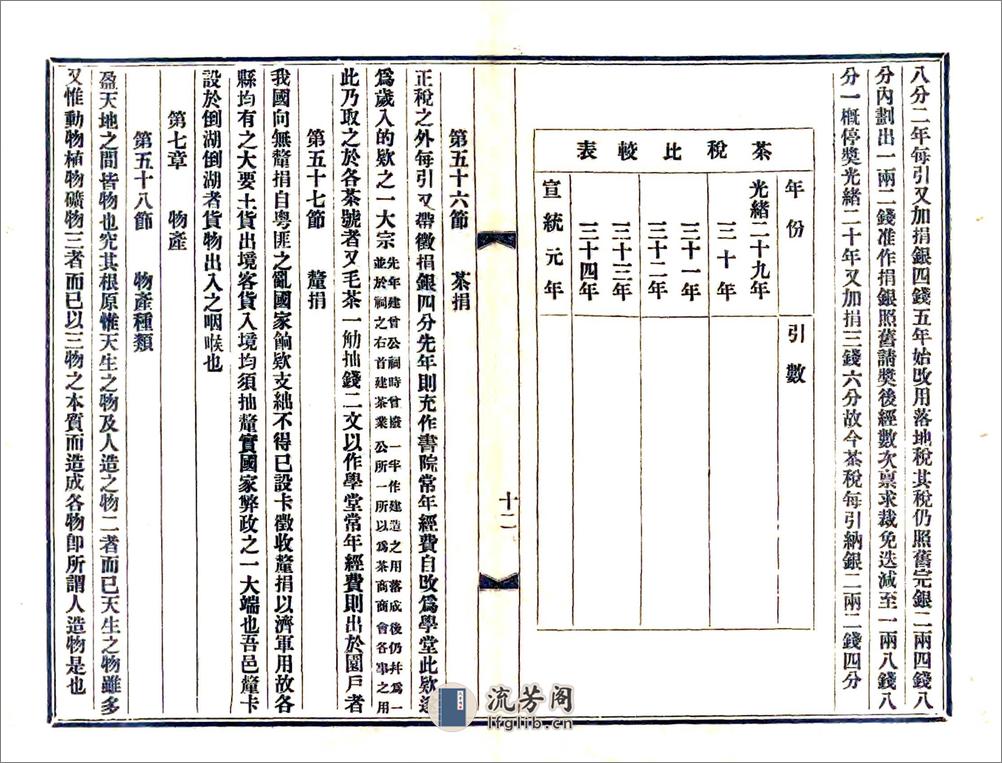 八分二年每引又加捐銀四錢五年始改用落地稅其稅仍照舊完銀二兩四錢八
分內劃出一兩二錢准作捐銀照舊請獎後經數次稟求裁免迭減至一兩八錢八
分一概停獎光緒二十年又加捐三錢六分故今茶稅每引納銀二兩二錢四分
茶稅比較表
年份
引數
光緒二十九年
三十年
三十一年
三十二年
三十三年
三十四年
宣統元年
十二
第五十六節 茶捐
正稅之外每引又帶徵捐銀四分先年則充作書院常年經費自改爲學堂此欵遂
爲歲入的欵之一大宗
先年建曾公祠時曾撥一半作建造之用落成後仍幷爲一
並於祠之右首建茶業公所一所以爲茶商商會各事之用
此乃取之於各茶號者又毛茶一觔抽錢二文以作學堂常年經費則出於園戶者
第五十七節 釐捐
我國向無釐捐自粵匪之亂國家餉欵支絀不得已設卡徵收釐捐以濟軍用故各
縣均有之大要土貨出境客貨入境均須抽釐實國家弊政之一大端也吾邑釐卡
設於倒湖倒湖者貨物出入之咽喉也
第七章 物產
第五十八節 物產種類
盈天地之間皆物也究其根原惟天生之物及人造之物二者而已天生之物雖多
又惟動物植物礦物三者而已以三物之本質而造成各物卽所謂人造物是也
流芳阁
lfglib.cn